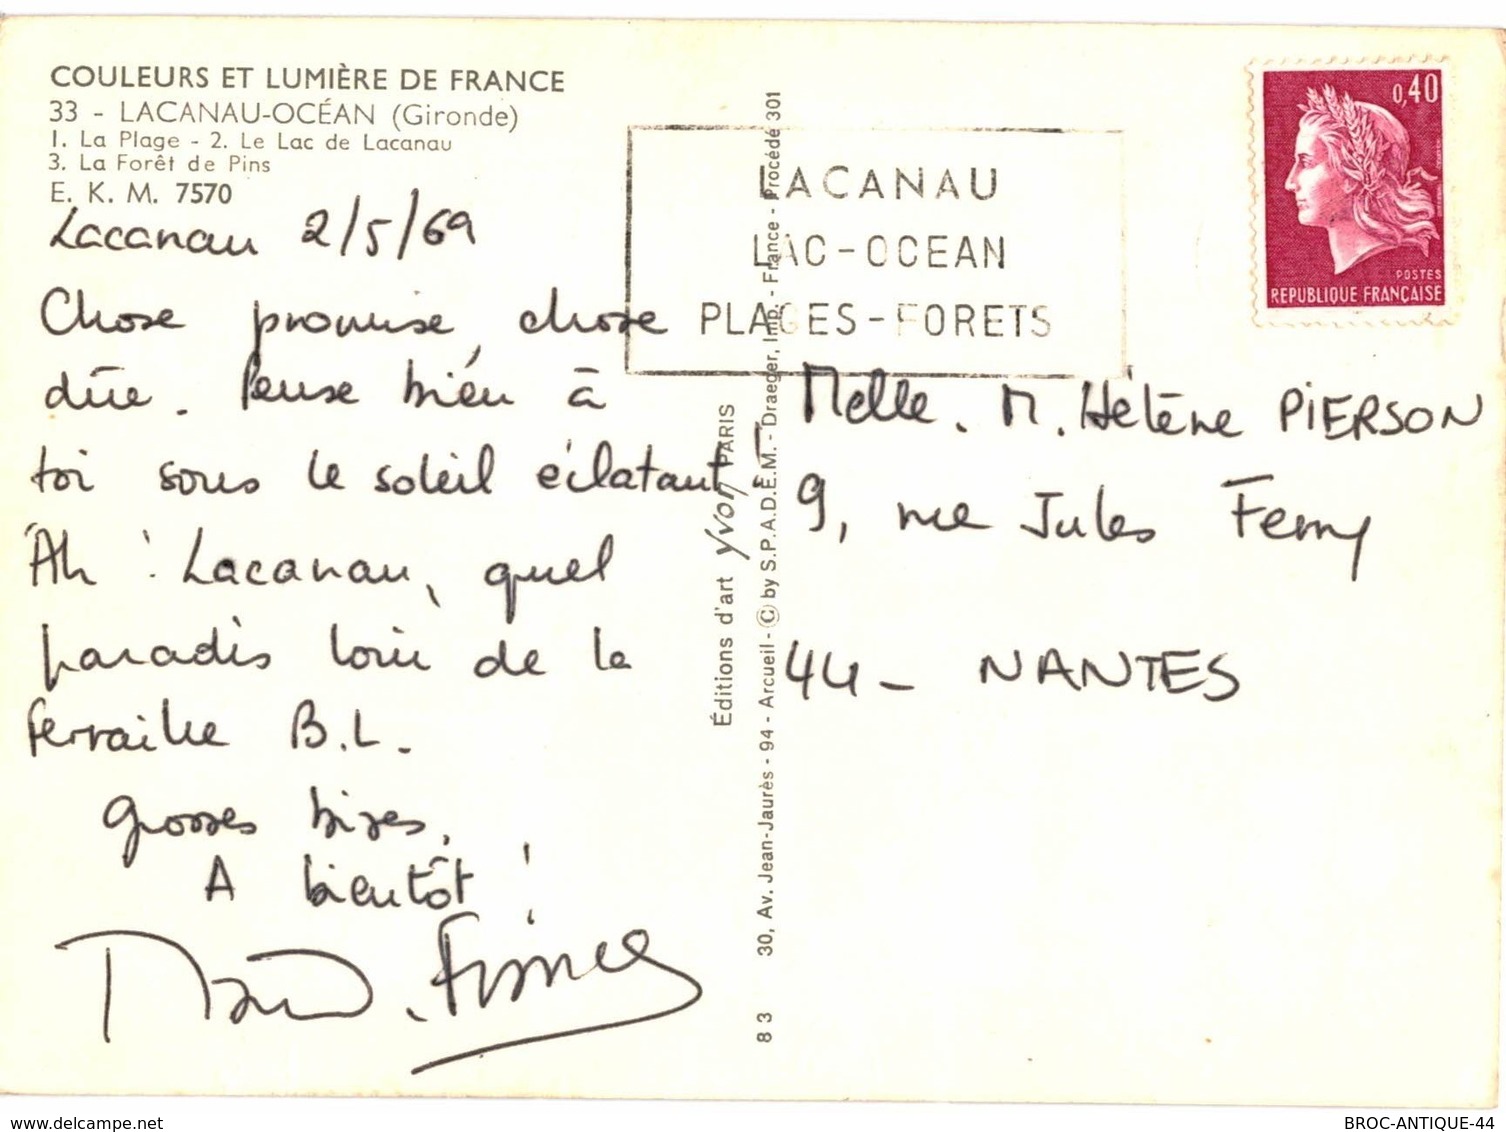 COULEURS ET LUMIÈRE DE FRANCE
33 - LACANAU-OCÉAN (Gironde)
1. La Plage - 2. Le Lac de Lacanau
3. La Forêt de Pins
E. K. M. 7570
Lacanau 2/5/69
Chose promise, chose
dûe. Pense bien à
toi sous le soleil éclatant !
Ah ! Lacanau, quel
paradis loin de la
Ferraille B.L.
Grosses bises.
A bientôt !
Éditions d'art Yvon PARIS
30, Av. Jean-Jaurès - 94 - Arcueil - © by S.P.A.D.E.M. - Draeger, Imp. - France - Procédé 301
83
LACANAU
LAC-OCEAN
PLAGES-FORETS
0,40
POSTES
REPUBLIQUE FRANÇAISE
Melle. M. Hélène PIERSON
9, rue Jules Ferry
44 - NANTES
delcampe.net
BROC-ANTIQUE-44